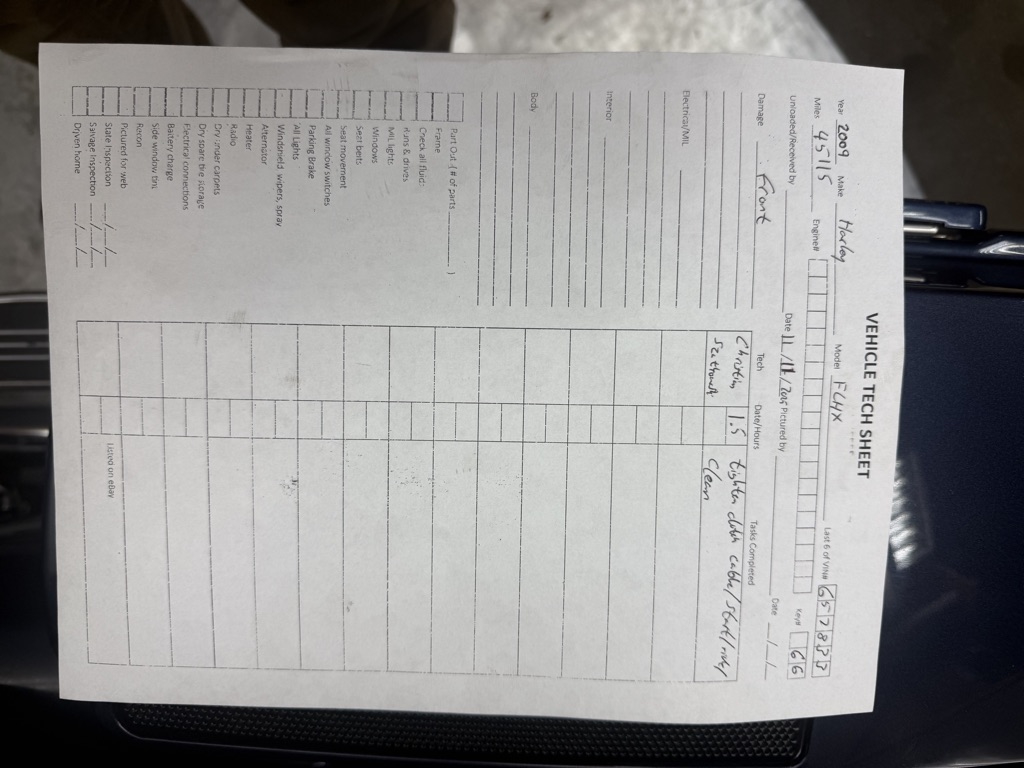 VEHICLE TECH SHEET
Year 2009 Make Harley Model FLHX Last 6 of VIN#
Miles 45115 Engine# Key# 66
Unloaded/Received by Date 11/11/ Pictured by Date __/__/__
Damage Front
Tech Date/Hours Tasks Completed
1.5 tighten clutch cable/start/ride/
clean
Electrical/MIL
Interior
Body
Part Out (# of parts )
Frame
Check all fluids
Runs & drives
MIL lights
Windows
Seat belts
Seat movement
All window switches
Parking Brake
All Lights
Windshield wipers, spray
Alternator
Heater
Radio
Dry under carpets
Dry spare tire storage
Electrical connections
Battery charge
Side window tint
Recon
Pictured for web
State Inspection __/__/__
Salvage Inspection __/__/__
Driven home __/__/__
Listed on eBay